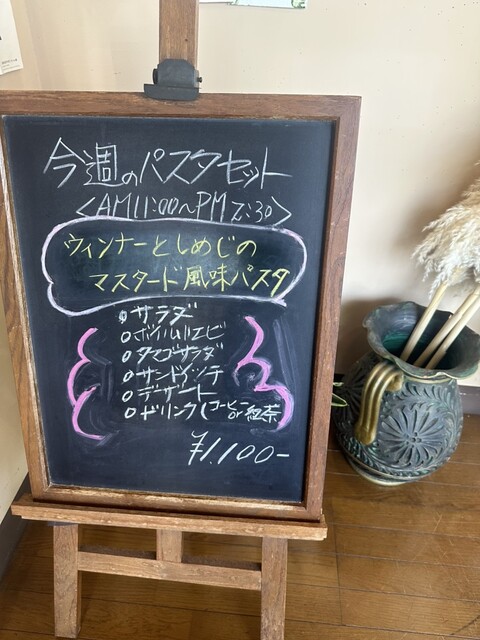 今週のパスタセット
<AM11:00~PM2:30>
ウィンナーとしめじの
マスタード風味パスタ
○サラダ
○ボイルエビ
○タマゴサラダ
○サンドイッチ
○デザート
○ドリンク(コーヒー
or 紅茶
¥1,100-